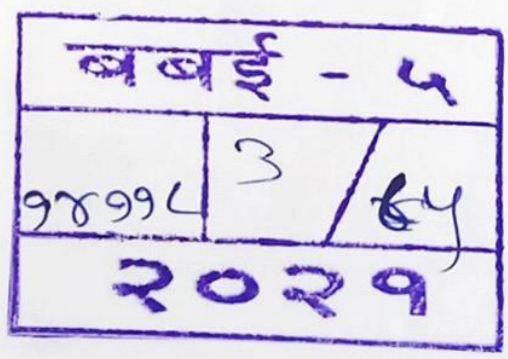 बबई - ५
१४११८ 3 / ६५
२०२१